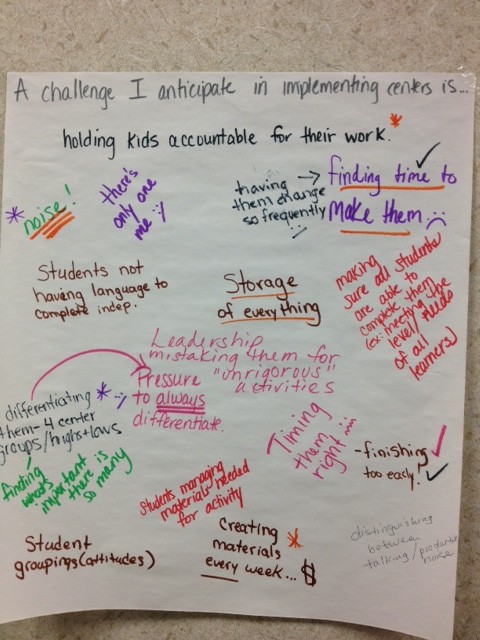 A challenge I anticipate in implementing centers is...
holding kids accountable for their work.*
* noise!
there's
only one
me :/
having
them change
so frequently
:(
→ finding time to
make them :(
Students not
having language to
complete indep.
Storage
of everything
making
sure all students
are able to
complete them
(ex: meeting the
level/needs
of all
learners)
Leadership
mistaking them for
"unrigorous"
activities
Pressure
to always
differentiate.
differentiating * :/
them - 4 center
groups/highs+lows
finding
what's
important
there is
so many
Students managing
materials needed
for activity
Timing
them
right....
-finishing
too early!
Student
groupings(attitudes)
Creating *
materials
every week... $
distinguishing
between
talking/productive
noise